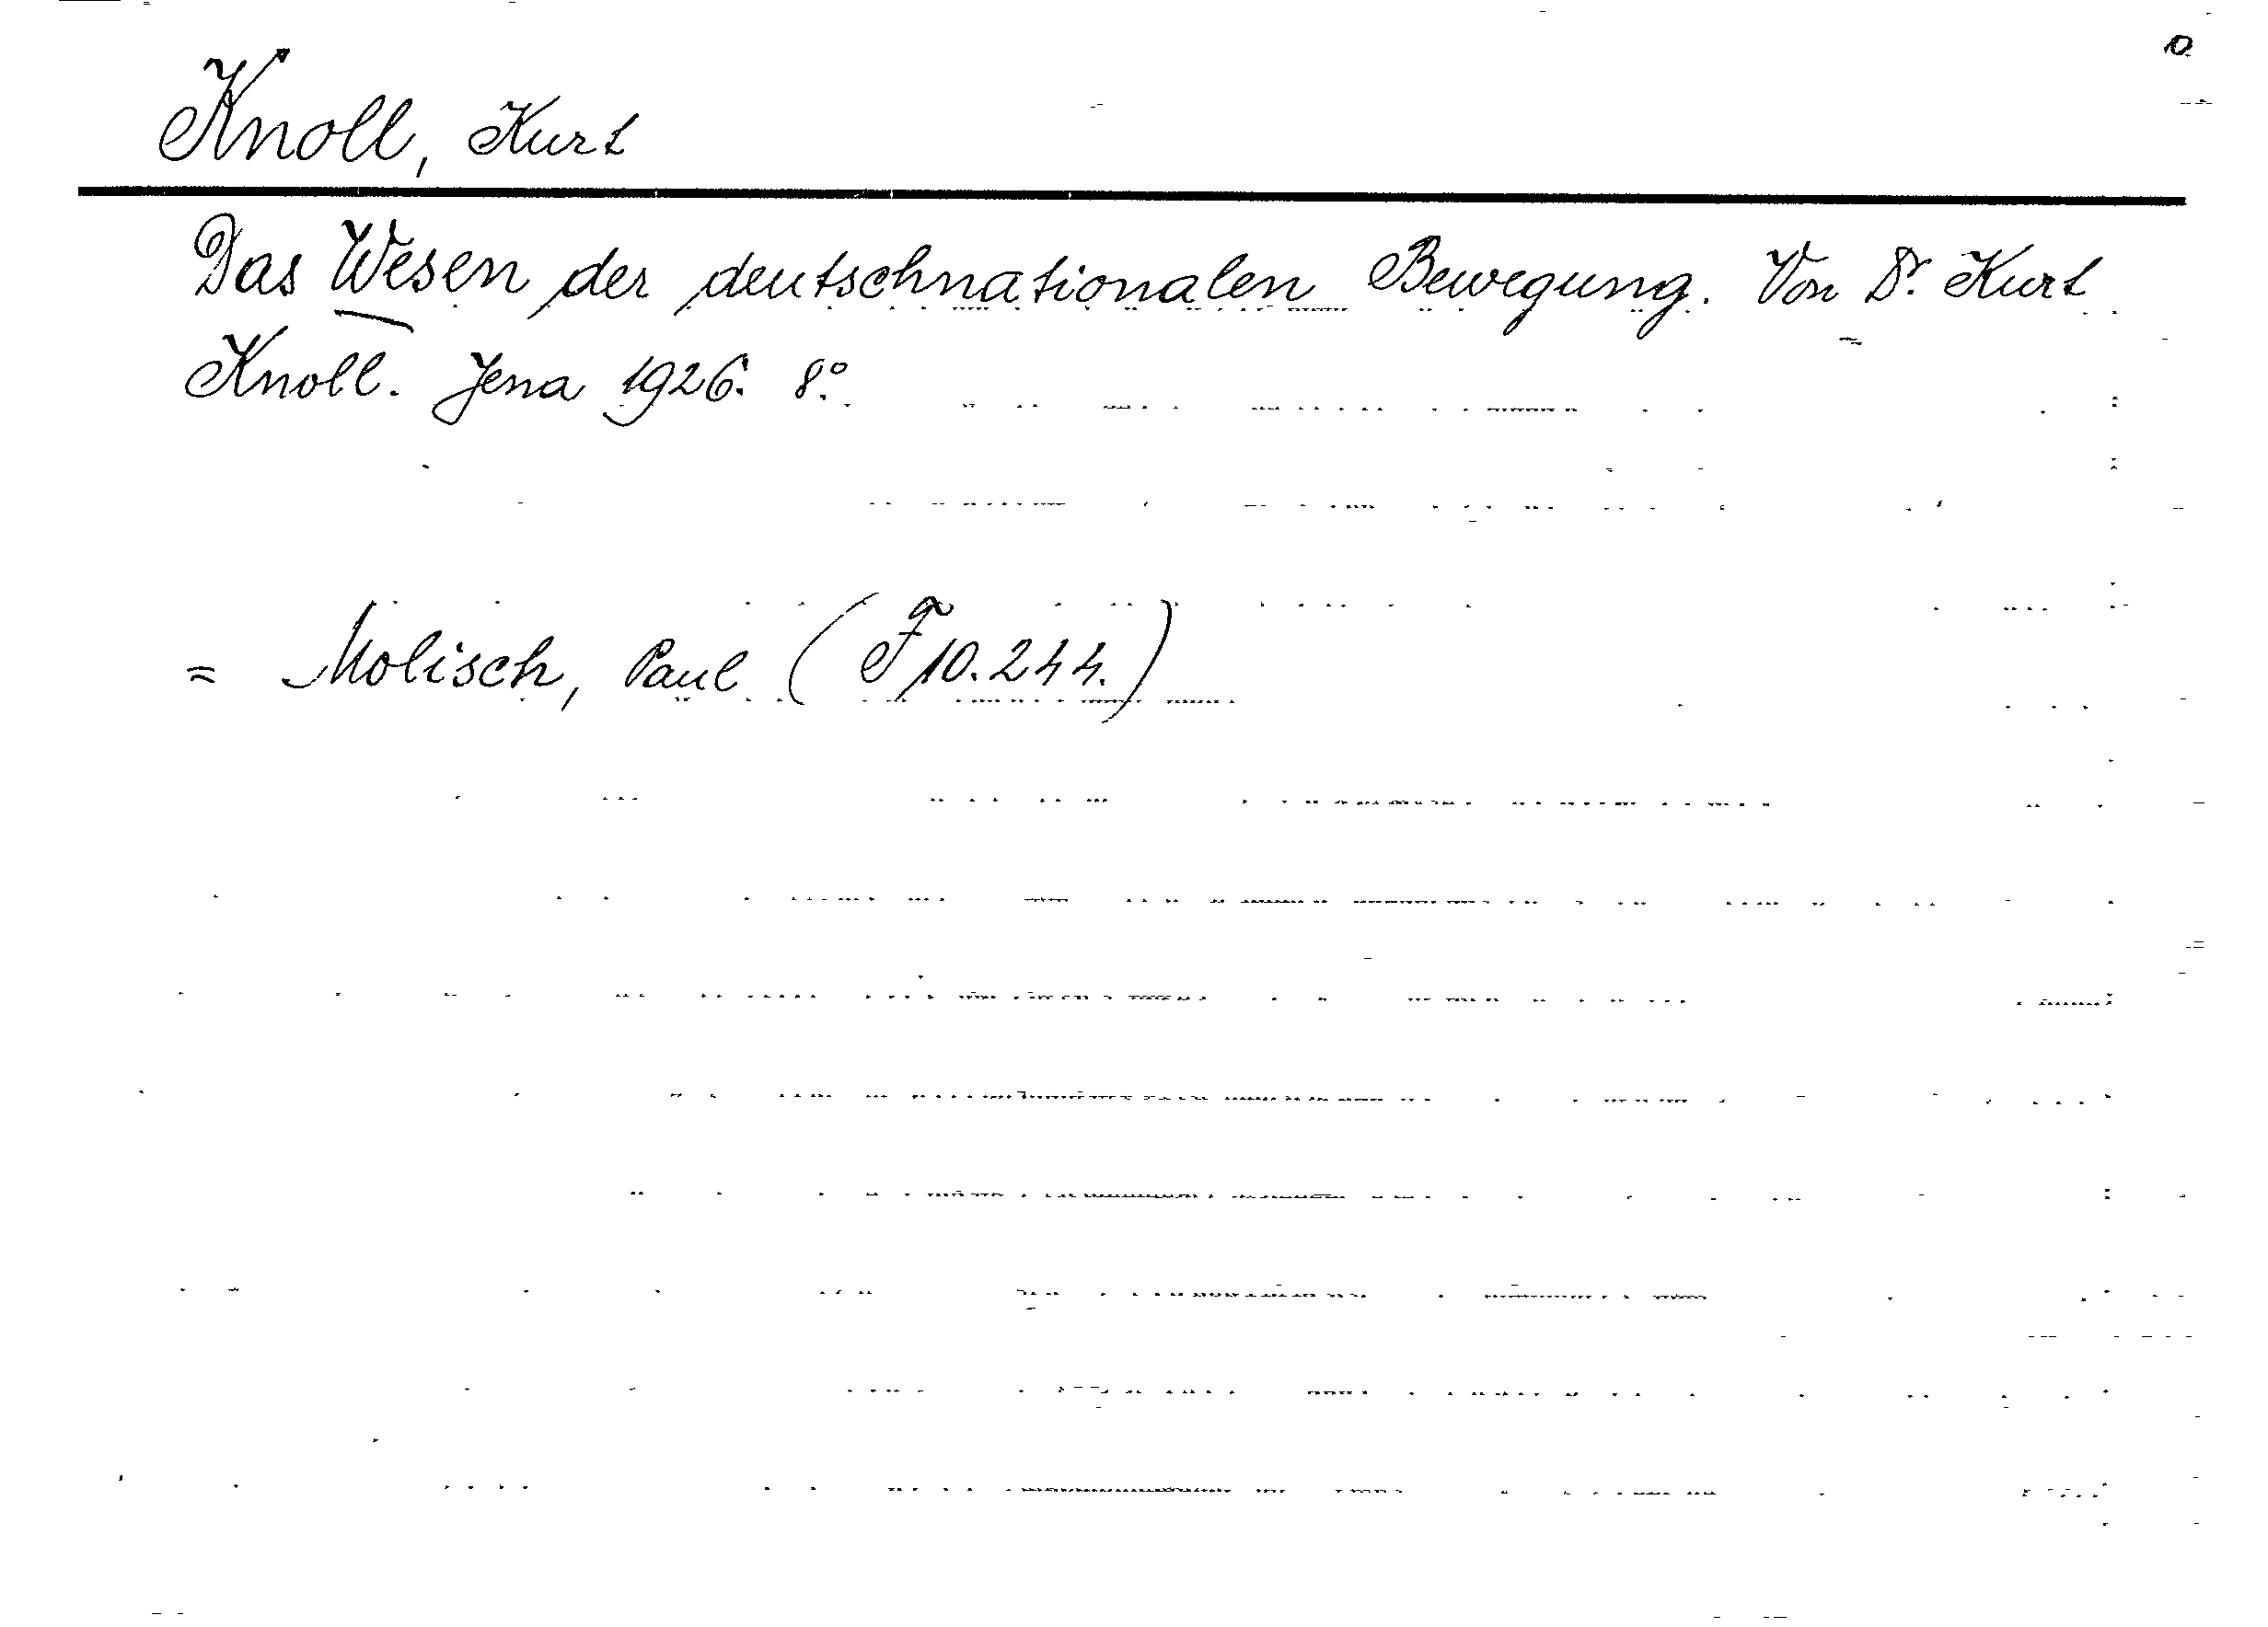 Knoll, Kurt
Das Wesen der deutschnationalen Bewegung. Von Dr. Kurt
Knoll. Jena 1926. 8°.
= Molisch, Paul (F 10.244.)